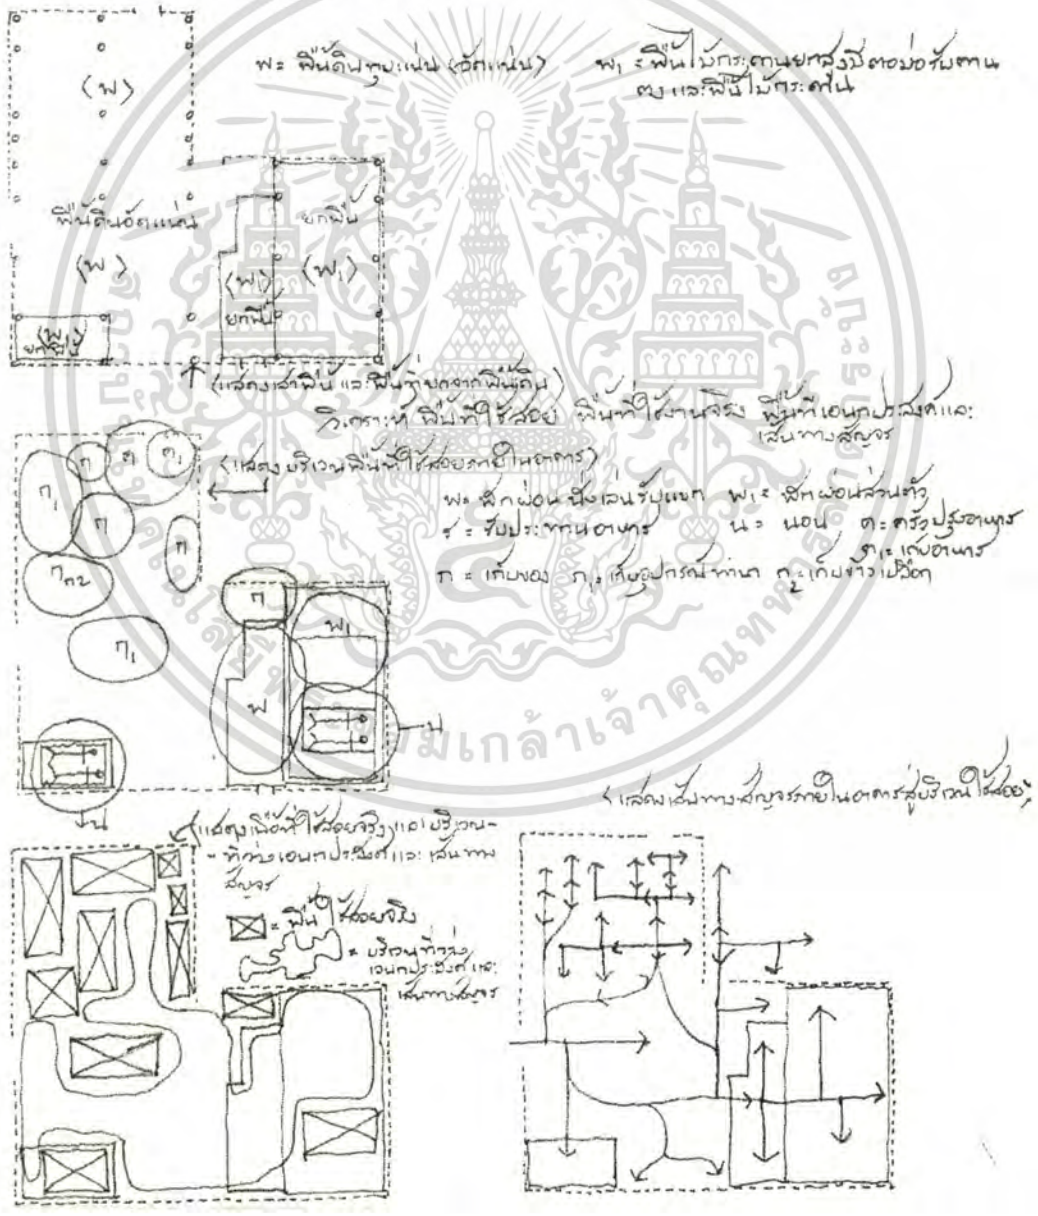 พ = พื้นดินทุบแน่น (อัดแน่น)
พ₁ = พื้นไม้กระดานยกสูงมีตอม่อรับคาน
ตง และพื้นไม้กระดาน
(พ)
พื้นดินอัดแน่น
(พ)
ยกพื้น
(พ₁)
(พ₁)
ยกพื้น
(พ₁)
ยกพื้น
(แสดงเสาพื้น และพื้นที่ยกจากพื้นดิน)
วิเคราะห์ พื้นที่ใช้สอย พื้นที่ใช้งานจริง พื้นที่เอนกประสงค์และ
เส้นทางสัญจร
(แสดงบริเวณพื้นที่ใช้สอยภายในอาคาร)
พ = พักผ่อน นั่งเล่น รับแขก พ₁ = พักผ่อนส่วนตัว
ร = รับประทานอาหาร น = นอน ค = ครัวปรุงอาหาร
ค₁ = เก็บอาหาร
ก = เก็บของ ก₁ = เก็บอุปกรณ์ทำนา ก₂ = เก็บข้าวเปลือก
ก ค ค₁
ก₁
ก ก
ก₂
ก
ก₁
พ₁
พ
น
น
(แสดงเส้นทางสัญจรภายในอาคารสู่บริเวณใช้สอย)
(แสดงเนื้อที่ใช้สอยจริง และบริเวณ-
- ที่ว่างเอนกประสงค์และ เส้นทาง
สัญจร
= พื้นที่ใช้สอยจริง
= บริเวณที่ว่าง
เอนกประสงค์ และ
เส้นทางสัญจร
สถาบันเทคโนโลยีพระจอมเกล้าเจ้าคุณทหารลาดกระบัง